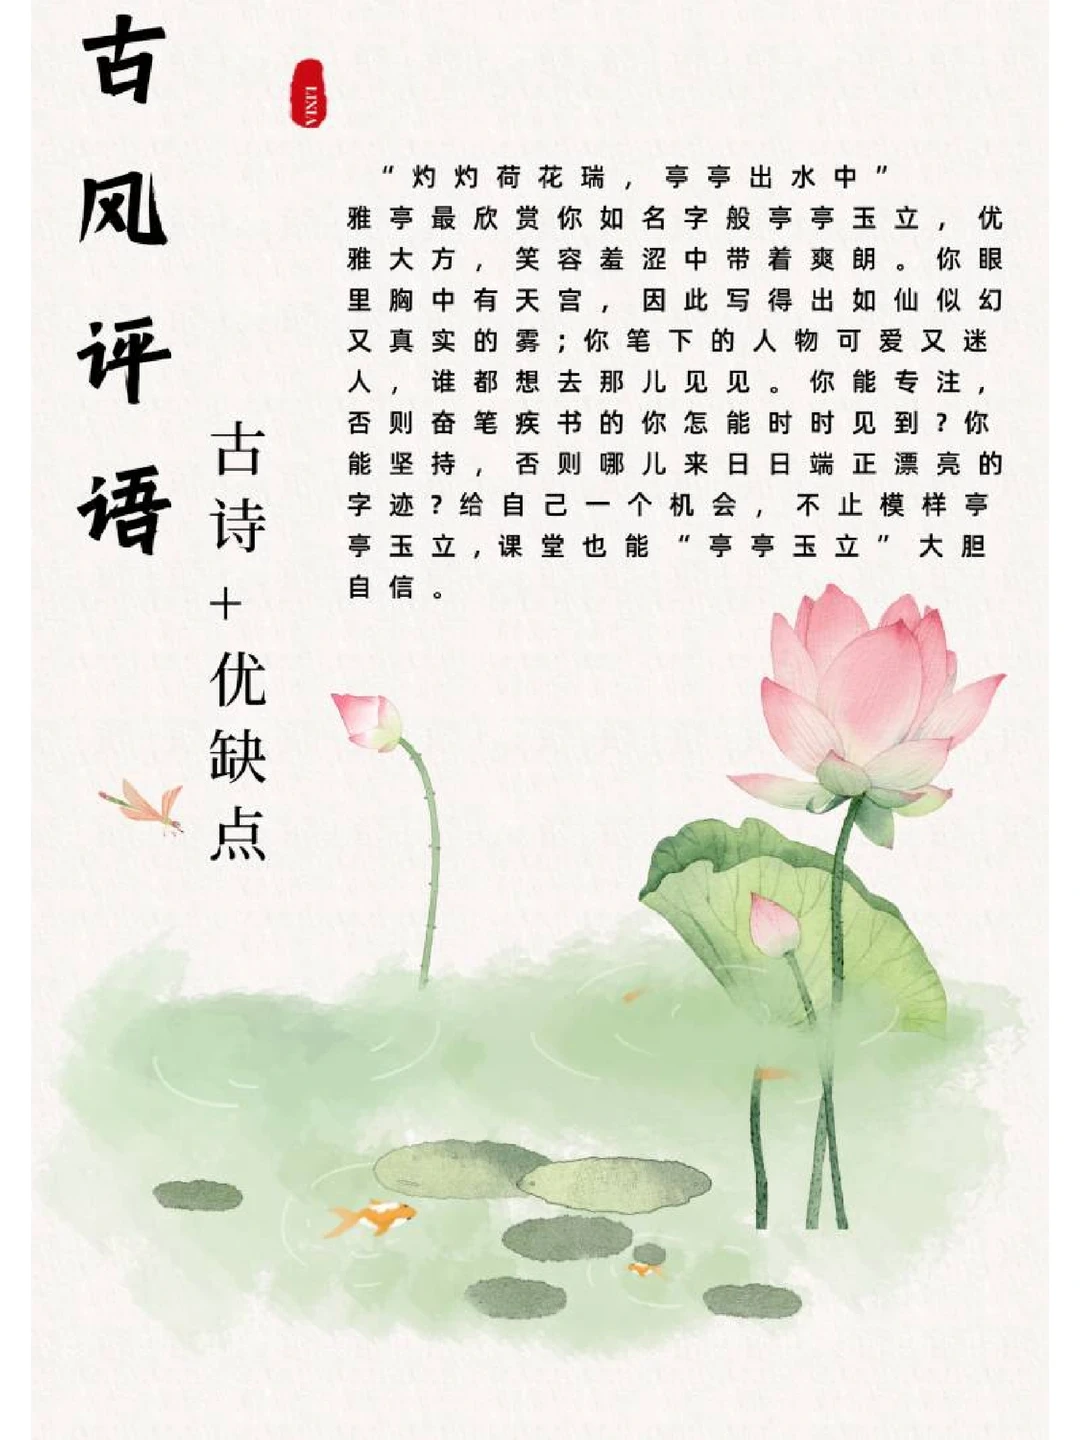 古风评语
古诗+优缺点
LIXIA
“灼灼荷花瑞，亭亭出水中”
雅亭最欣赏你如名字般亭亭玉立，优
雅大方，笑容羞涩中带着爽朗。你眼
里胸中有天宫，因此写得出如仙似幻
又真实的雾;你笔下的人物可爱又迷
人，谁都想去那儿见见。你能专注，
否则奋笔疾书的你怎能时时见到?你
能坚持，否则哪儿来日日端正漂亮的
字迹?给自己一个机会，不止模样亭
亭玉立,课堂也能“亭亭玉立”大胆
自信。